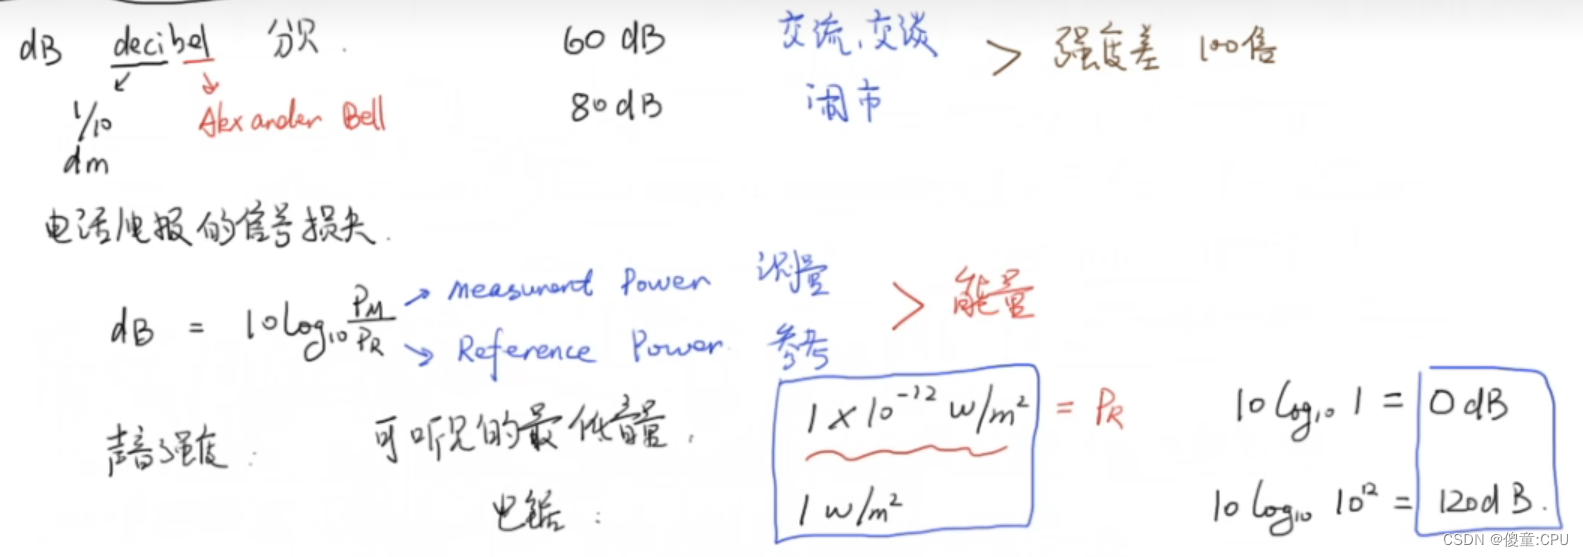 dB decibel 分贝.
1/10
dm
Alexander Bell
60 dB 交流,交谈
80 dB 闹市
> 强度差 100倍
电话/电报的信号损失.
dB = 10 log₁₀ P_M/P_R
→ Measurent Power 测量
→ Reference Power. 参考
> 能量
声音强度:
可听见的最低音量. 1 × 10⁻¹² w/m² = P_R
电锯: 1 w/m²
10 log₁₀ 1 = 0 dB
10 log₁₀ 10¹² = 120 dB.
CSDN @傻童:CPU